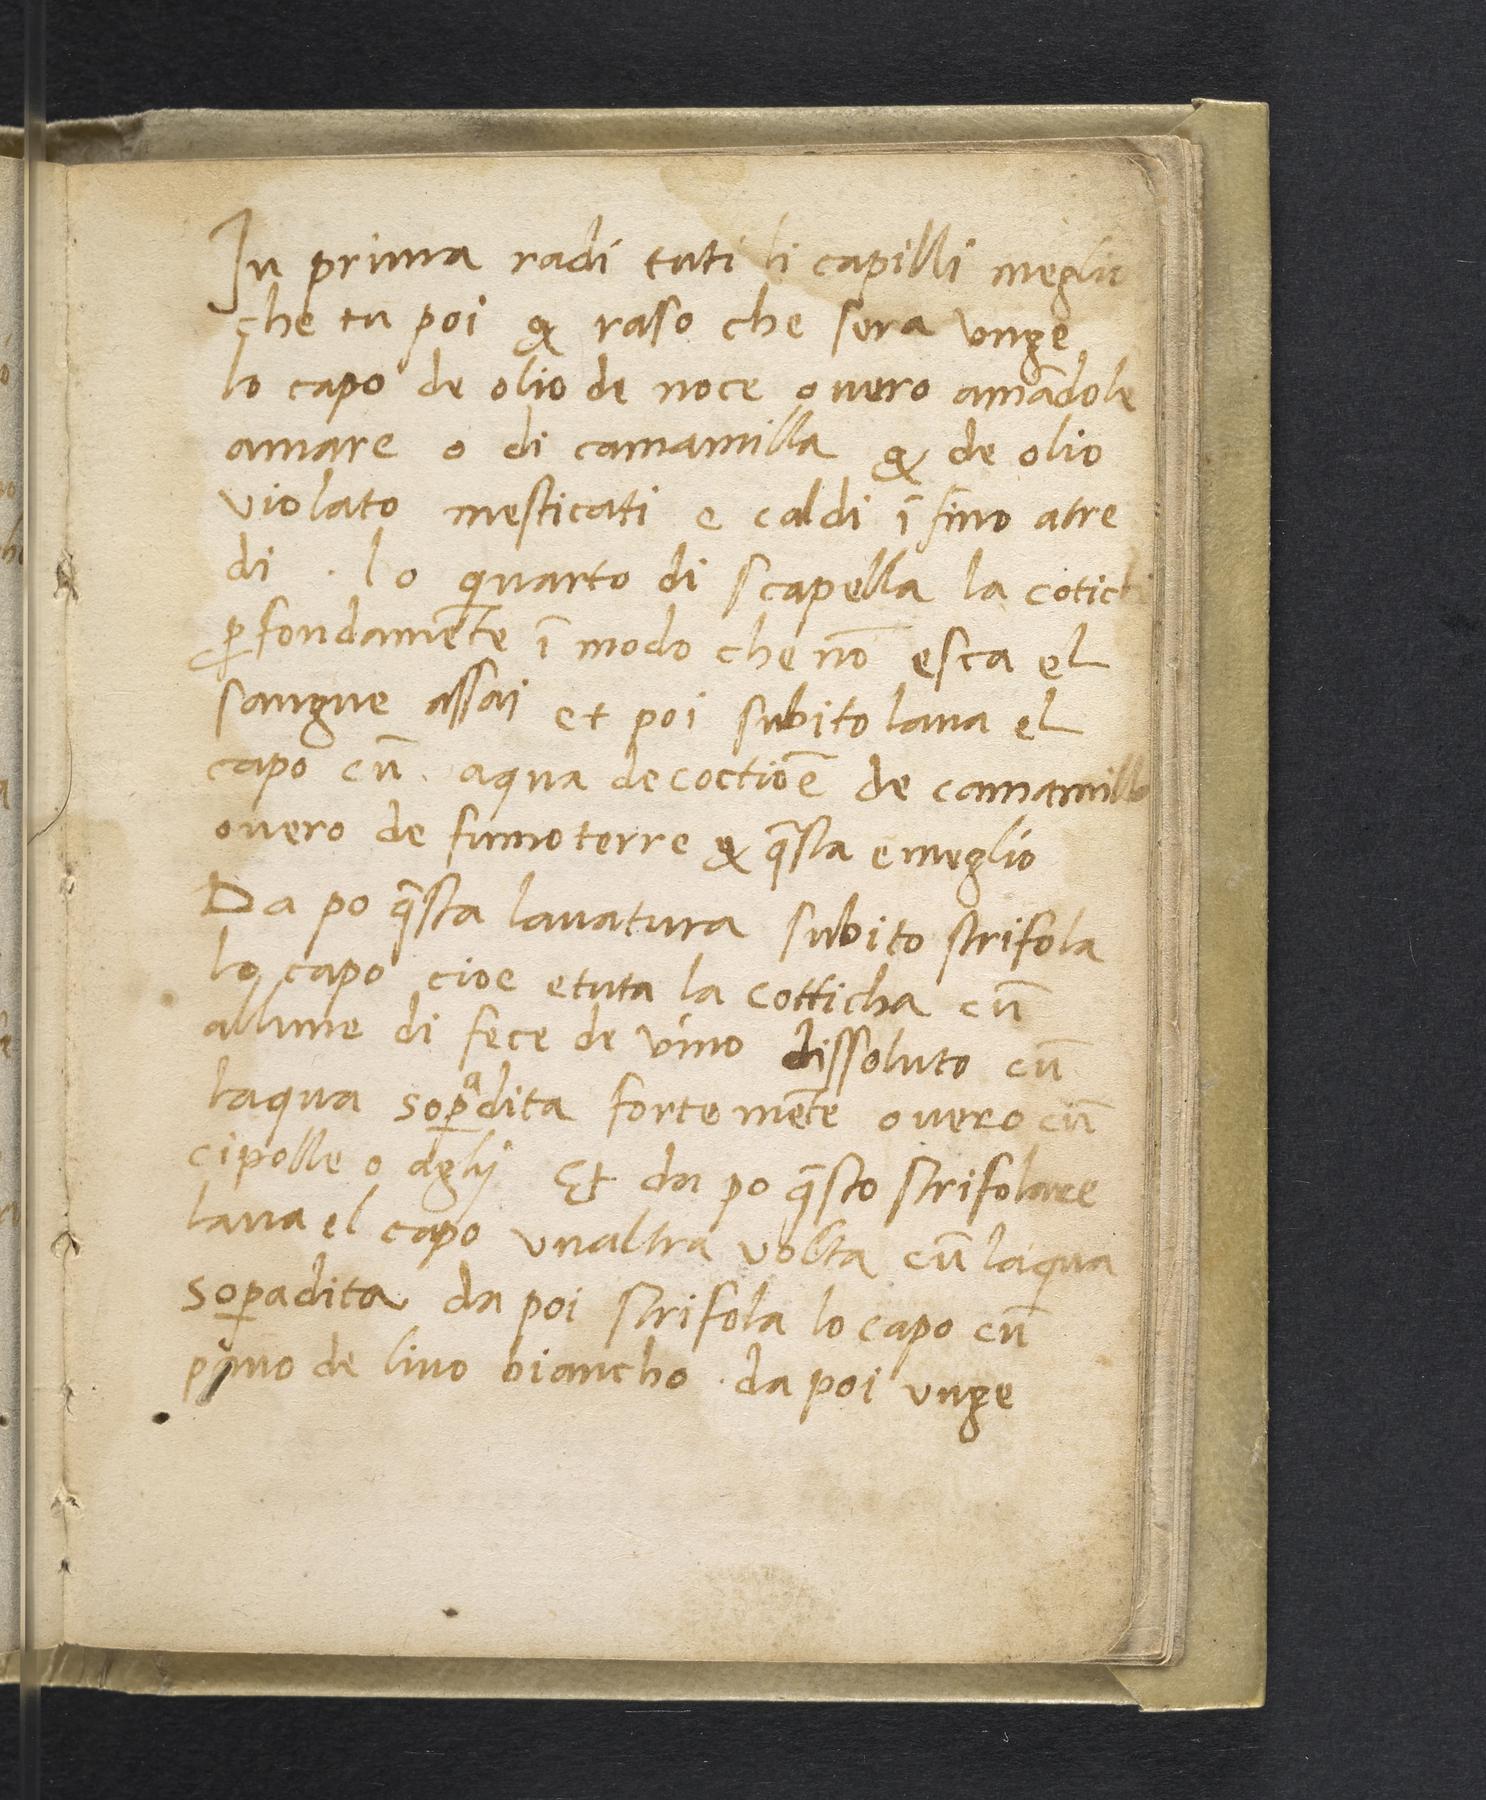 In prima radi tuti li capilli meglio
che tu poi & raso che sera vnge
lo capo de olio de noce ouero amādole
amare o di camamilla & de olio
violato mesticati e caldi ī fino atre
di . lo quarto di scapella la cotich
ꝓfondamēte ī modo che nō esca el
sangue assai et poi subito laua el
capo cū aqua decoctiōe de camamilla
ouero de fumoterre & q̄sta e meglio
Da po q̄sta lauatura subito strifola
lo capo cioe etuta la cotticha cū
allume di fece de vino dissoluto cū
laqua soꝑᵃdita fortemēte ouero cū
cipolle o aglij Et da po q̄sto strifolare
laua el capo vnaltra volta cū laqua
soꝑadita da poi strifola lo capo cū
pāno de lino biancho . da poi vnge